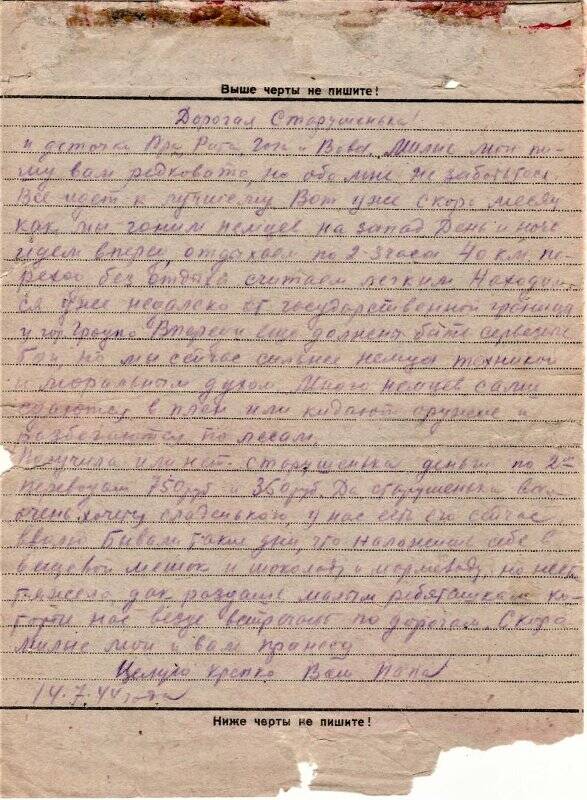 Выше черты не пишите!
Дорогая Старушенька!
и деточки Ира, Рита, Гога и Вова. Милые мои пи-
шу вам редковато, но обо мне не заботьтесь
Всё идет к лучшему Вот уже скоро месяц
как мы гоним немцев на запад День и ночь
идем вперед, отдыхаем по 2-3 часа 40 км. пе-
реход без отдыха считаем легким Находим-
ся уже недалеко от государственной границы
и гор. Гродно Впереди еще должны быть серьезные
бои, но мы сейчас сильнее немца техникой
и моральным духом Много немцев сами
сдаются в плен или кидают оружие и
разбегаются по лесам.
Получила или нет старушенька деньги по 2м
переводам 750 руб и 360 руб. Да старушенька
очень хочету сладенького, у нас есть его сейчас
вволю Бывали такие дни, что наложишь себе в
вещевой мешок и шоколаду и мармеладу, но нести
тяжело дак раздаешь малым ребяташкам ко-
торые нас везде встречают по дорогам. Скоро
милые мои и вам принесу
Целую крепко Ваш Папа
14.7.44 года
Ниже черты не пишите!